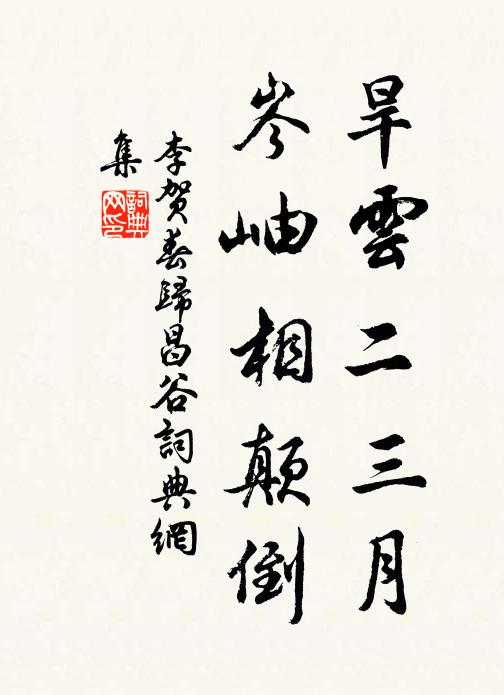 旱雲二三月
岑岫相顛倒
李賀春歸昌谷詞典網
集
詞典网印